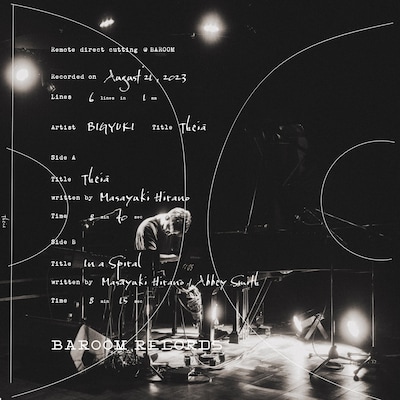 Remote direct cutting @ BAROOM
Recorded on August 21, 2023
Lines 6 lines in 1 mm
Artist BIGYUKI Title Theia
Side A
Title Theia
written by Masayuki Hirano
Time 8 min 70 sec
Side B
Title In a Spiral
written by Masayuki Hirano / Abbey Smith
Time 5 min 15 sec
BAROOM RECORDS
Theia